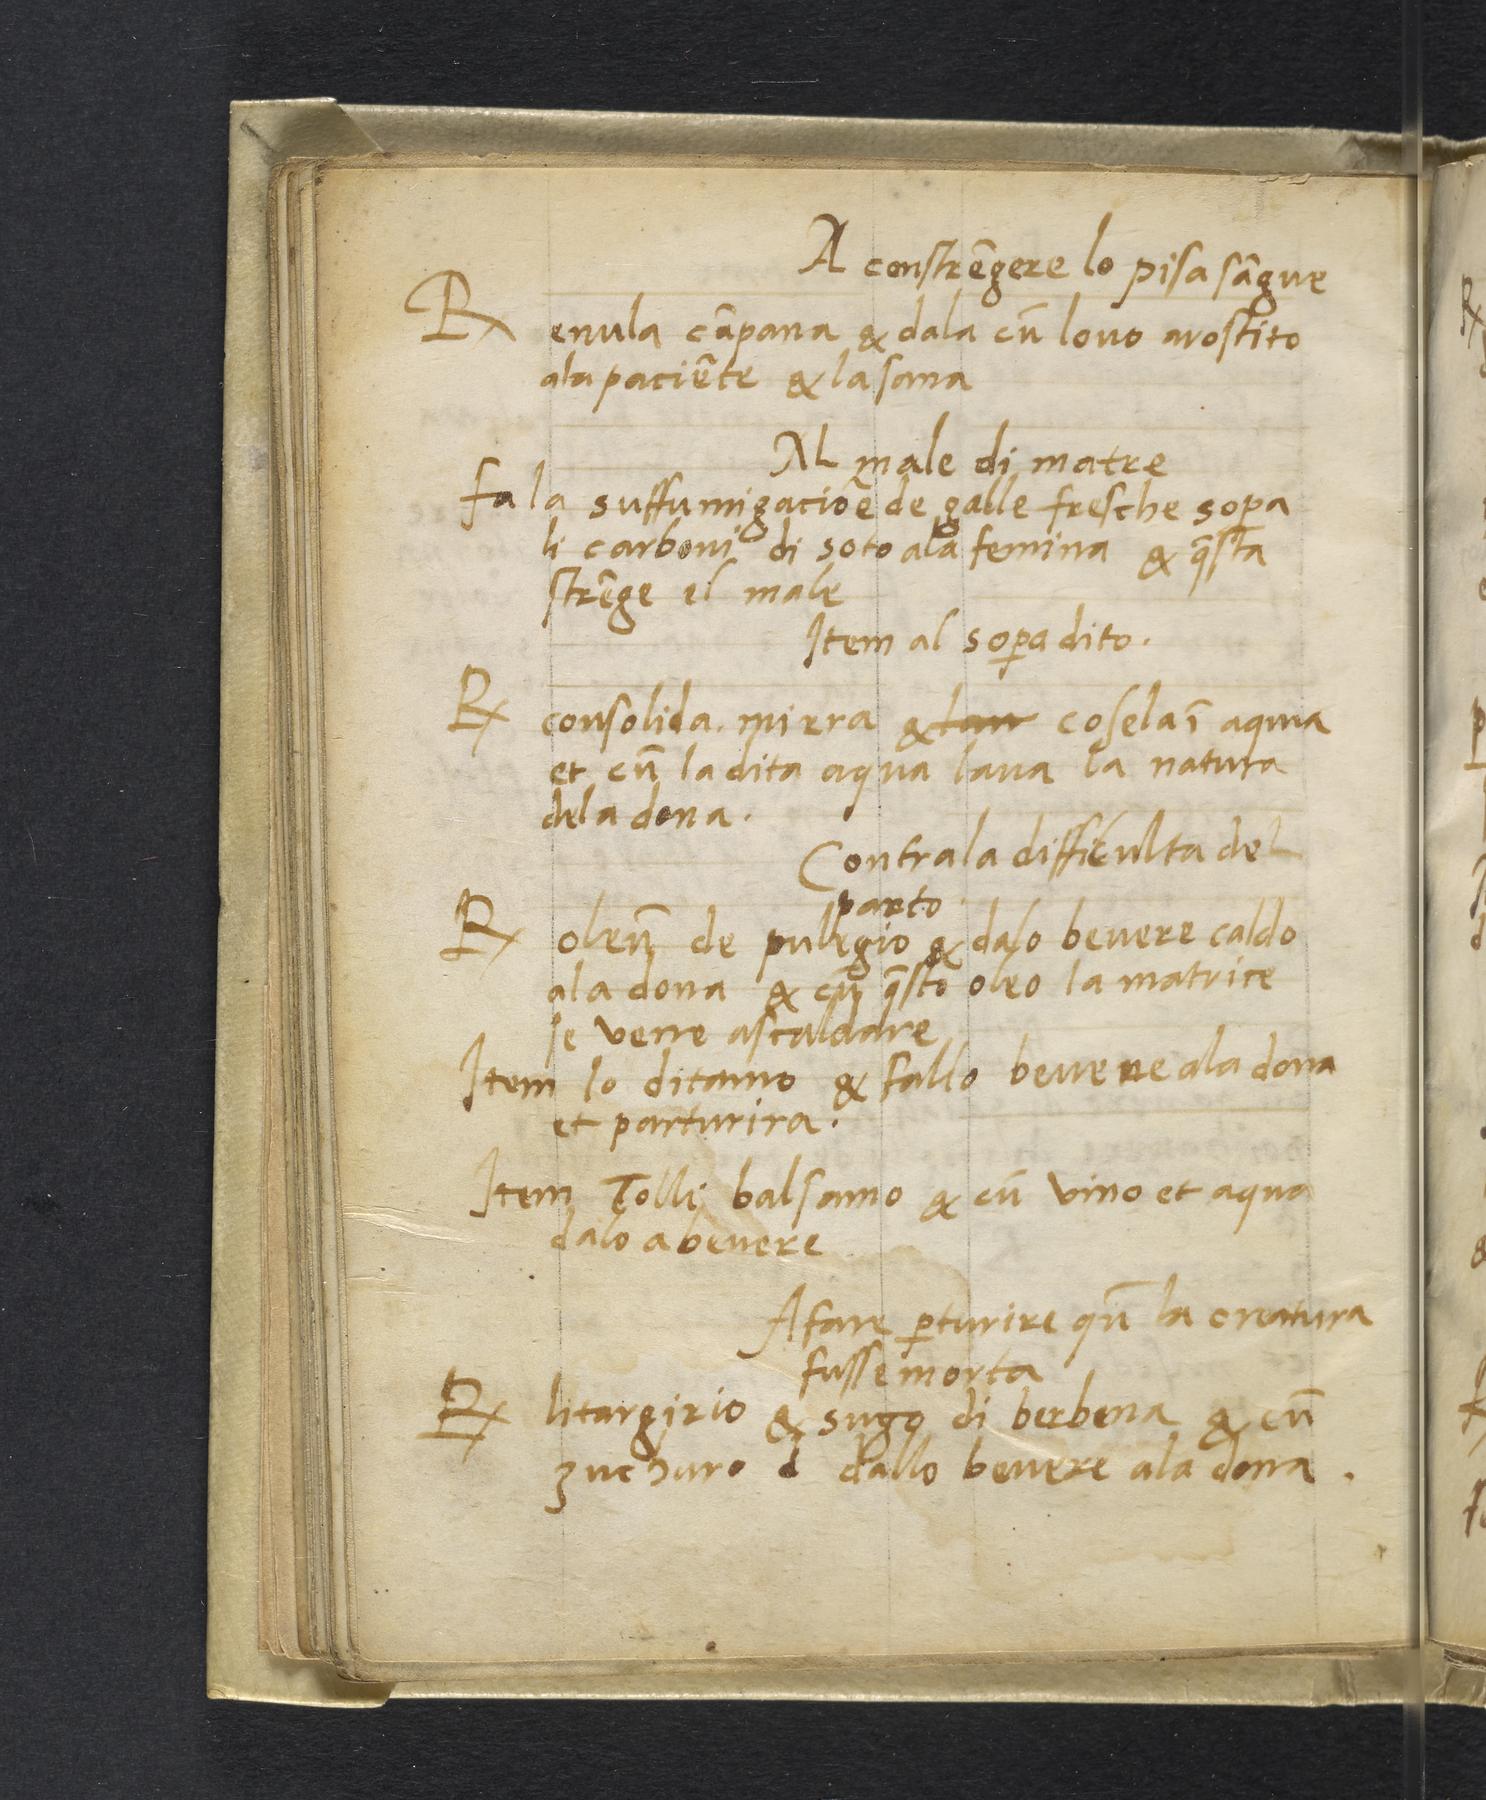 A constrēgere lo pisa sāgue
℞ enula cāpana & dala cū lovo arostito
ala paciēte & la sana
AL male di matre
fa la suffumigaciōe de galle fresche sopa
li carboni di soto ala femina & q̄sta
strēge el male
Item al sopa dito.
℞ consolida. mirra & lau cosela ī aqua
et cū la dita aqua laua la natura
dela dona.
Contra la difficulta del
parto
℞ oleū de pulegio & dalo beuere caldo
ala dona & cū q̄sto oleo la matrice
se verre ascaldare
Item lo ditamo & fallo beuere ala dona
et parturira.
Item Tolli balsamo & cū vino et aqua
dalo a beuere
A fare ꝑturire qū la creatura
fusse morta
℞ litargirio & sugo di berbena & cū
zucharo d dallo beuere ala dona.